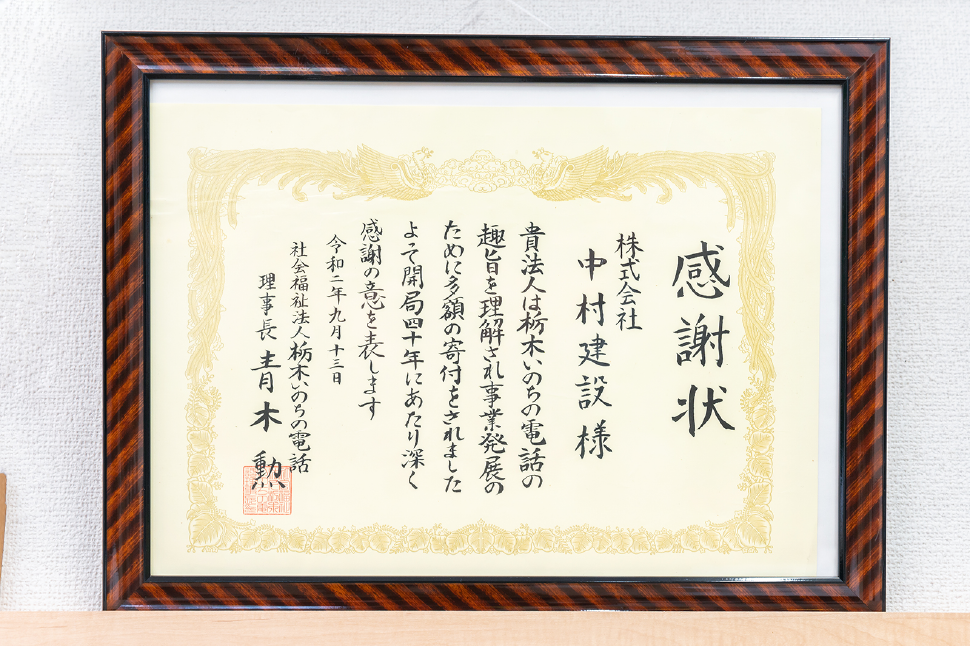 感謝状
株式会社
中村建設様
貴法人は栃木いのちの電話の
趣旨を理解され事業発展の
ために多額の寄付をされました
よって開局四十年にあたり深く
感謝の意を表します
令和二年九月十三日
社会福祉法人栃木いのちの電話
理事長青木勲